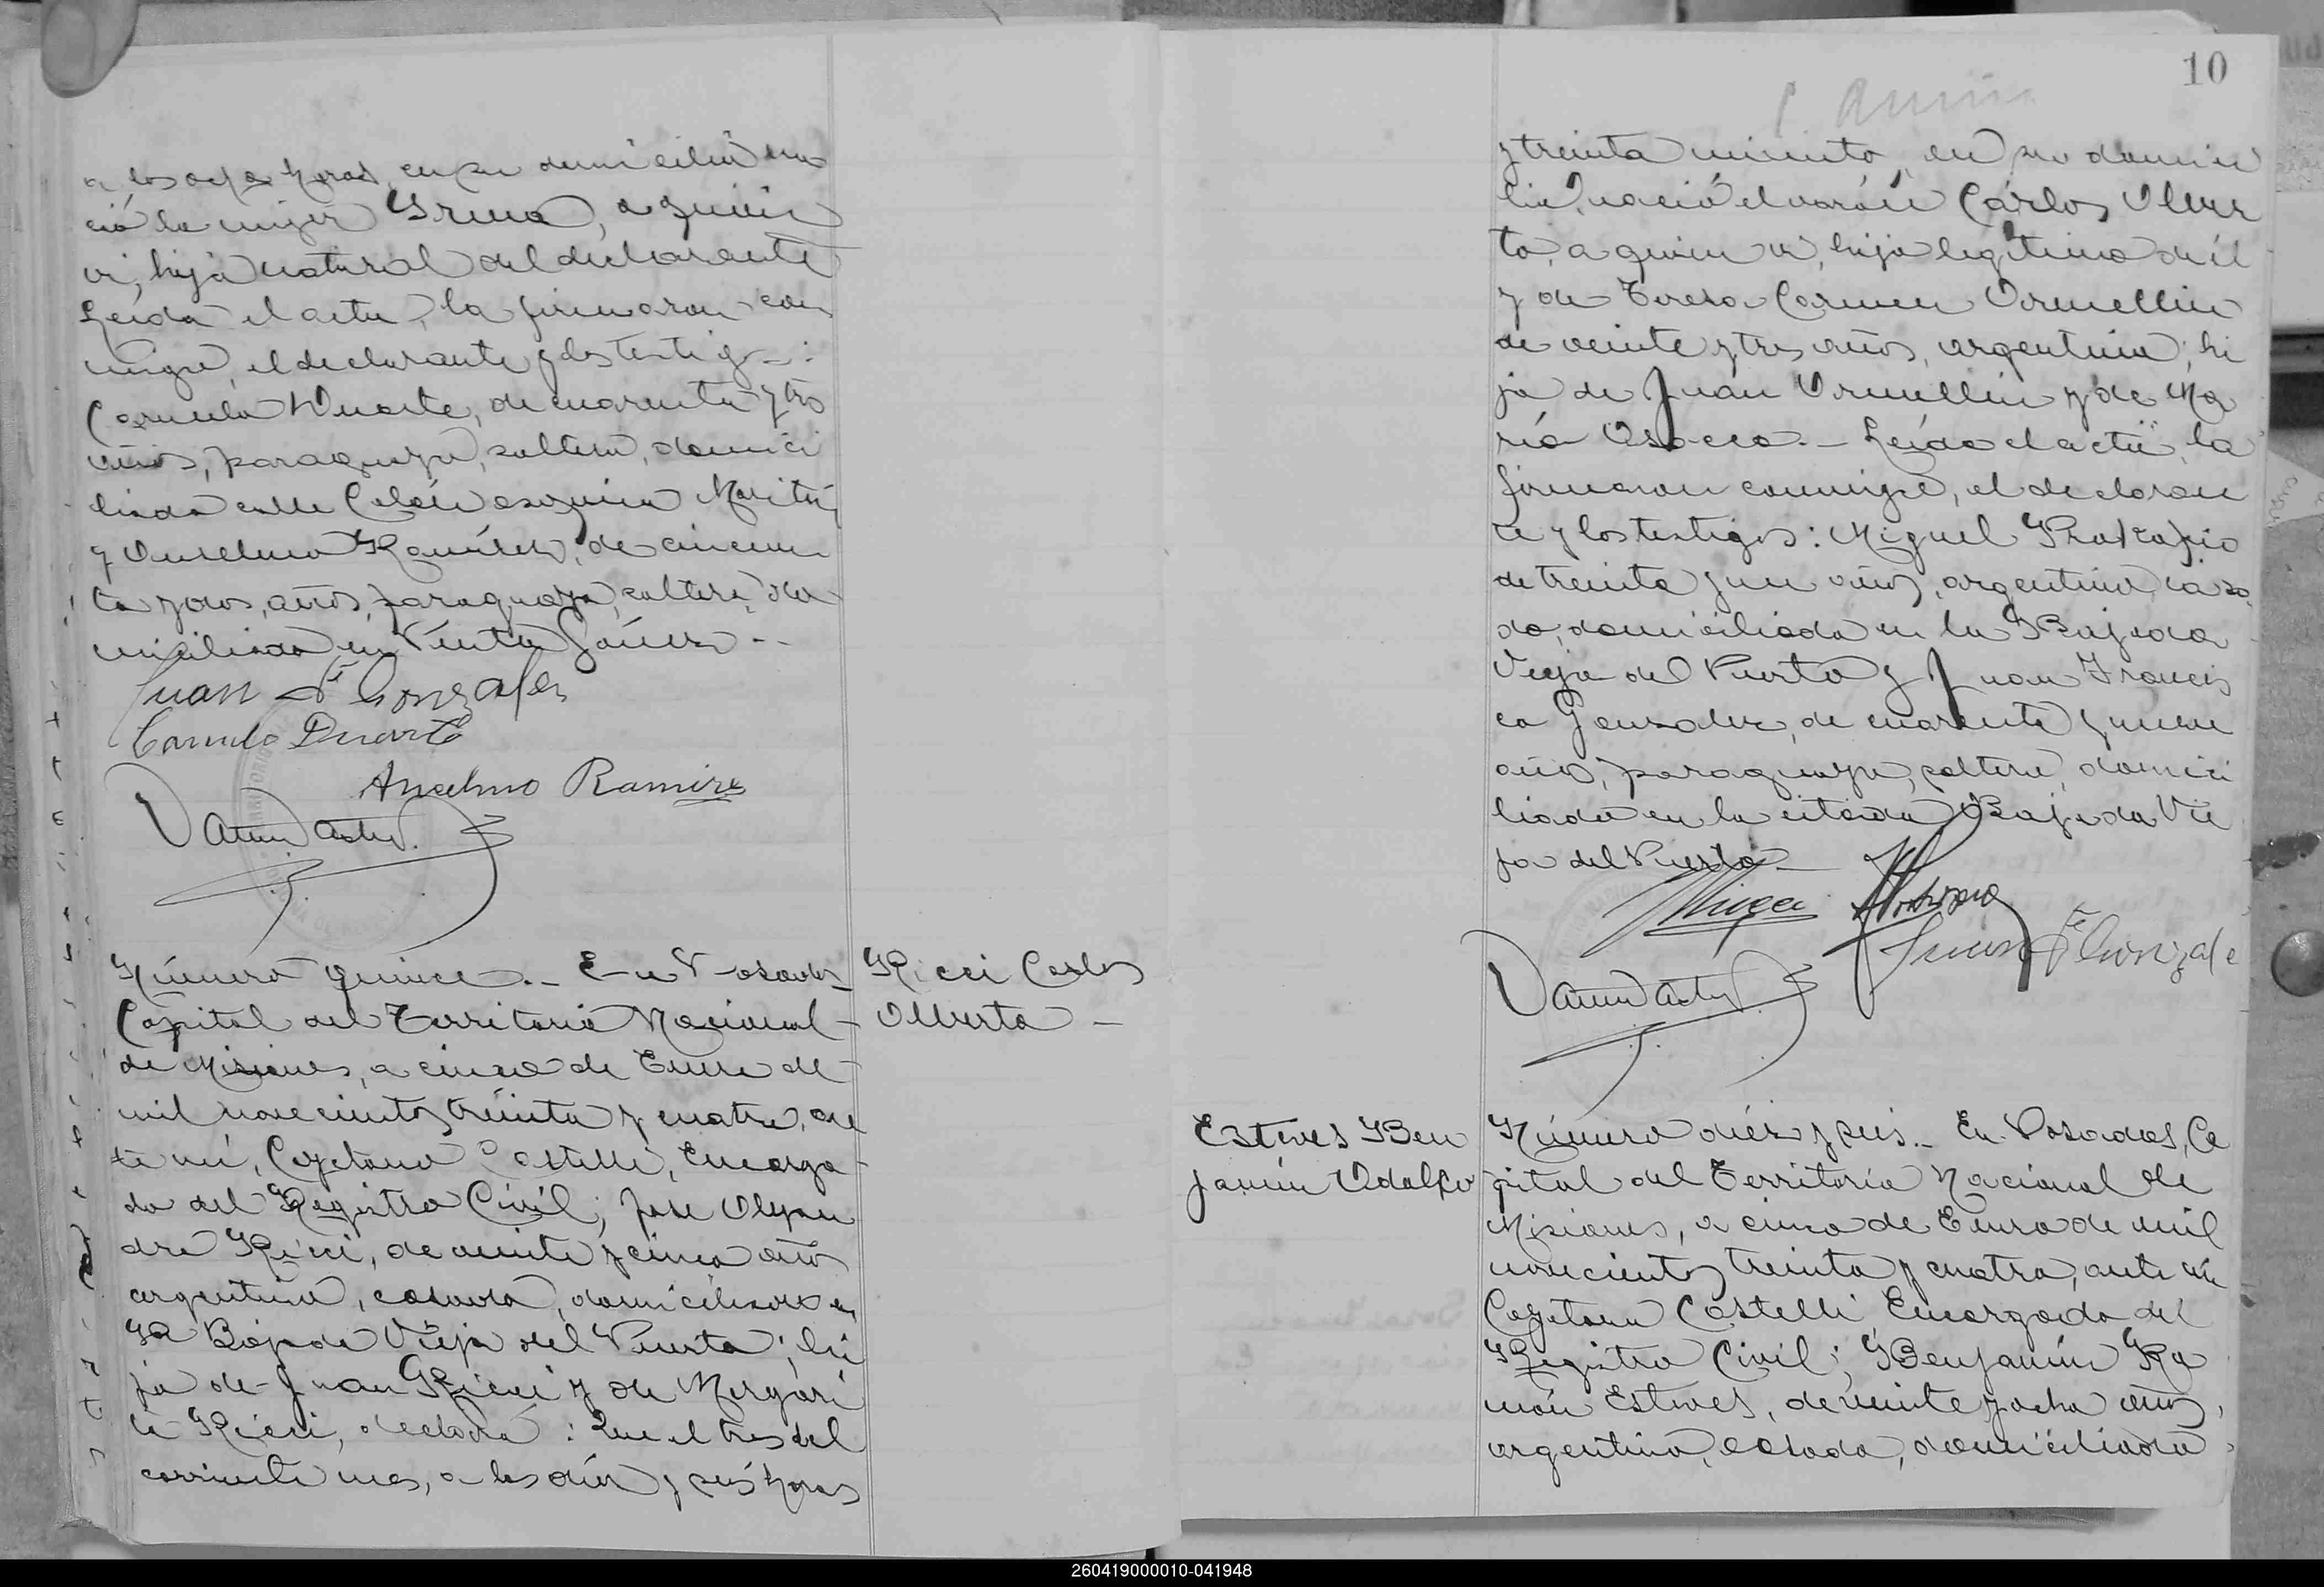 a las ocho horas, en su domicilio na
ció la mujer Irma, a quien
vi, hija natural del declarante
Leída el acta, la firmaron con
migo, el declarante y los testigos:
Camilo Duarte, de cuarenta y tres
años, paraguayo, soltero, domici
liado calle Colón esquina Maitú
y Anselmo Ramírez, de cincuen
ta y dos, años, paraguayo, soltero, do
miciliado en Villa
Juan Fco Gonzales
Camilo Duarte
Anselmo Ramirez
Número quince.- En Posadas
Capital del Territorio Nacional
de Misiones, a cinco de Enero de
mil novecientos treinta y cuatro, an
te mí, Cayetano Castelli, Encarga
do del Registro Civil; José Alejan
dro Ricci, de veinte y cinco años
argentino, casado, domiciliado en
la Bajada Vieja del Puerto; hi
jo de Juan Ricci y de Margari
ta Ricci, declaró: Que el tres del
corriente mes, a las diez y seis horas
Ricci Carlos
Alberto -
10
y treinta minutos, en su domici
lio, nació el varón Cárlos Alber
to, a quien vi, hijo legítimo de él
y de Teresa Carmen Ormellin
de veinte y tres años, argentina; hi
ja de Juan Ormellin y de Ma
ría .- Leída el acta, la
firmaron conmigo, el declaran
te y los testigos: Miguel
de treinta y un años, argentino, casa
do, domiciliado en la Bajada
Vieja del Puerto y Juan Francis
co Gonzalez, de cuarenta y nueve
años, paraguayo, soltero, domici
liado en la citada Bajada Vie
ja del Puerto.-
Juan Fco Gonzale
Esteves Ben
jamín Adolfo
Número diéz y seis.- En Posadas, Ca
pital del Territorio Nacional de
Misiones, a cinco de Enero de mil
novecientos treinta y cuatro, ante mí
Cayetano Castelli Encargado del
Registro Civil; Benjamín Ra
món Esteves, de veinte y ocho años,
argentino, casado, domiciliado
260419000010-041948